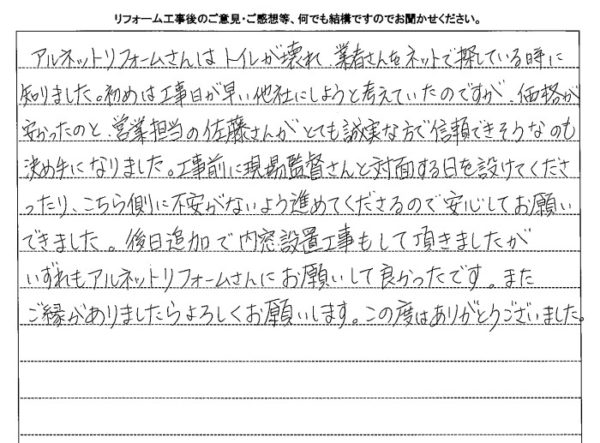 リフォーム工事後のご意見・ご感想等、何でも結構ですのでお聞かせください。
アルネットリフォームさんはトイレが壊れ、業者さんをネットで探している時に
知りました。初めは工事日が早い他社にしようと考えていたのですが、価格が
安かったのと、営業担当の佐藤さんがとても誠実な方で信頼できそうなのも
決め手になりました。工事前に現場監督さんと対面する日を設けてくださ
ったり、こちら側に不安がないよう進めてくださるので安心してお願い
できました。後日追加で内窓設置工事もして頂きましたが
いずれもアルネットリフォームさんにお願いして良かったです。また
ご縁がありましたらよろしくお願いします。この度はありがとうございました。